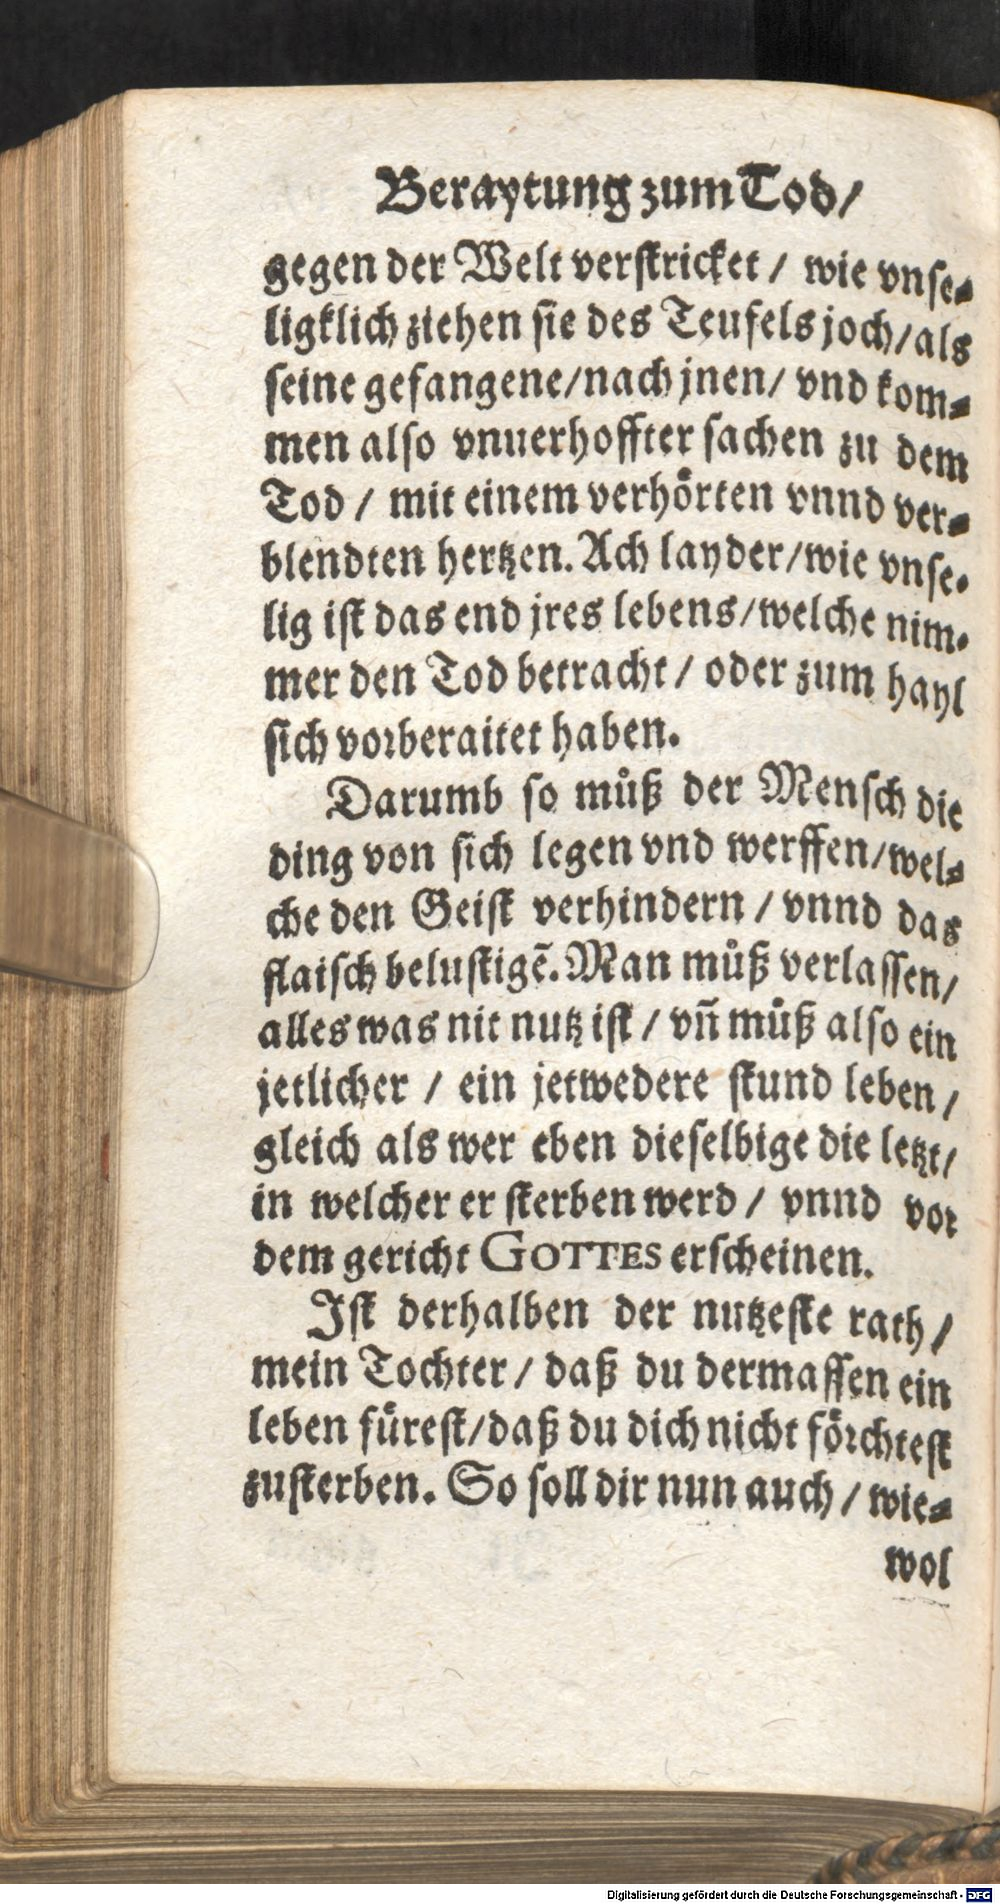 Beraytung zum Tod/
gegen der Welt verstricket / wie vnse⸗
ligklich ziehen sie des Teufels joch/als
seine gefangene/nach jnen/ vnd kom⸗
men also vnuerhoffter sachen zu dem
Tod / mit einem verhörten vnnd ver⸗
blendten hertzen. Ach layder/wie vnse⸗
lig ist das end jres lebens/welche nim⸗
mer den Tod betracht / oder zum hayl
sich vorberaitet haben.
Darumb so můß der Mensch die
ding von sich legen vnd werffen/wel⸗
che den Geist verhindern / vnnd das
flaisch belustigẽ. Man můß verlassen/
alles was nit nutz ist / vñ můß also ein
jetlicher / ein jetwedere stund leben/
gleich als wer eben dieselbige die letzt/
in welcher er sterben werd / vnnd vor
dem gericht GOTTES erscheinen.
Ist derhalben der nutzeste rath/
mein Tochter / daß du dermassen ein
leben fürest/daß du dich nicht förchtest
zusterben. So soll dir nun auch / wie⸗
wol
Digitalisierung gefördert durch die Deutsche Forschungsgemeinschaft - DFG